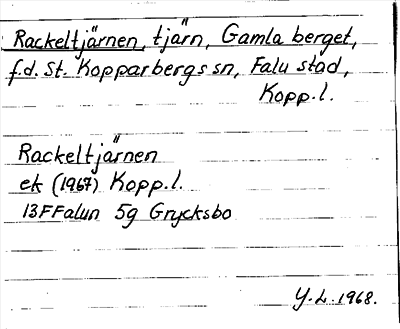 Rackeltjärnen, tjärn, Gamla berget,
f.d. St. Kopparbergs sn, Falu stad,
Kopp.l.
Rackeltjärnen
ek (1967) Kopp.l.
13F Falun 5g Grycksbo
Y.L. 1968.